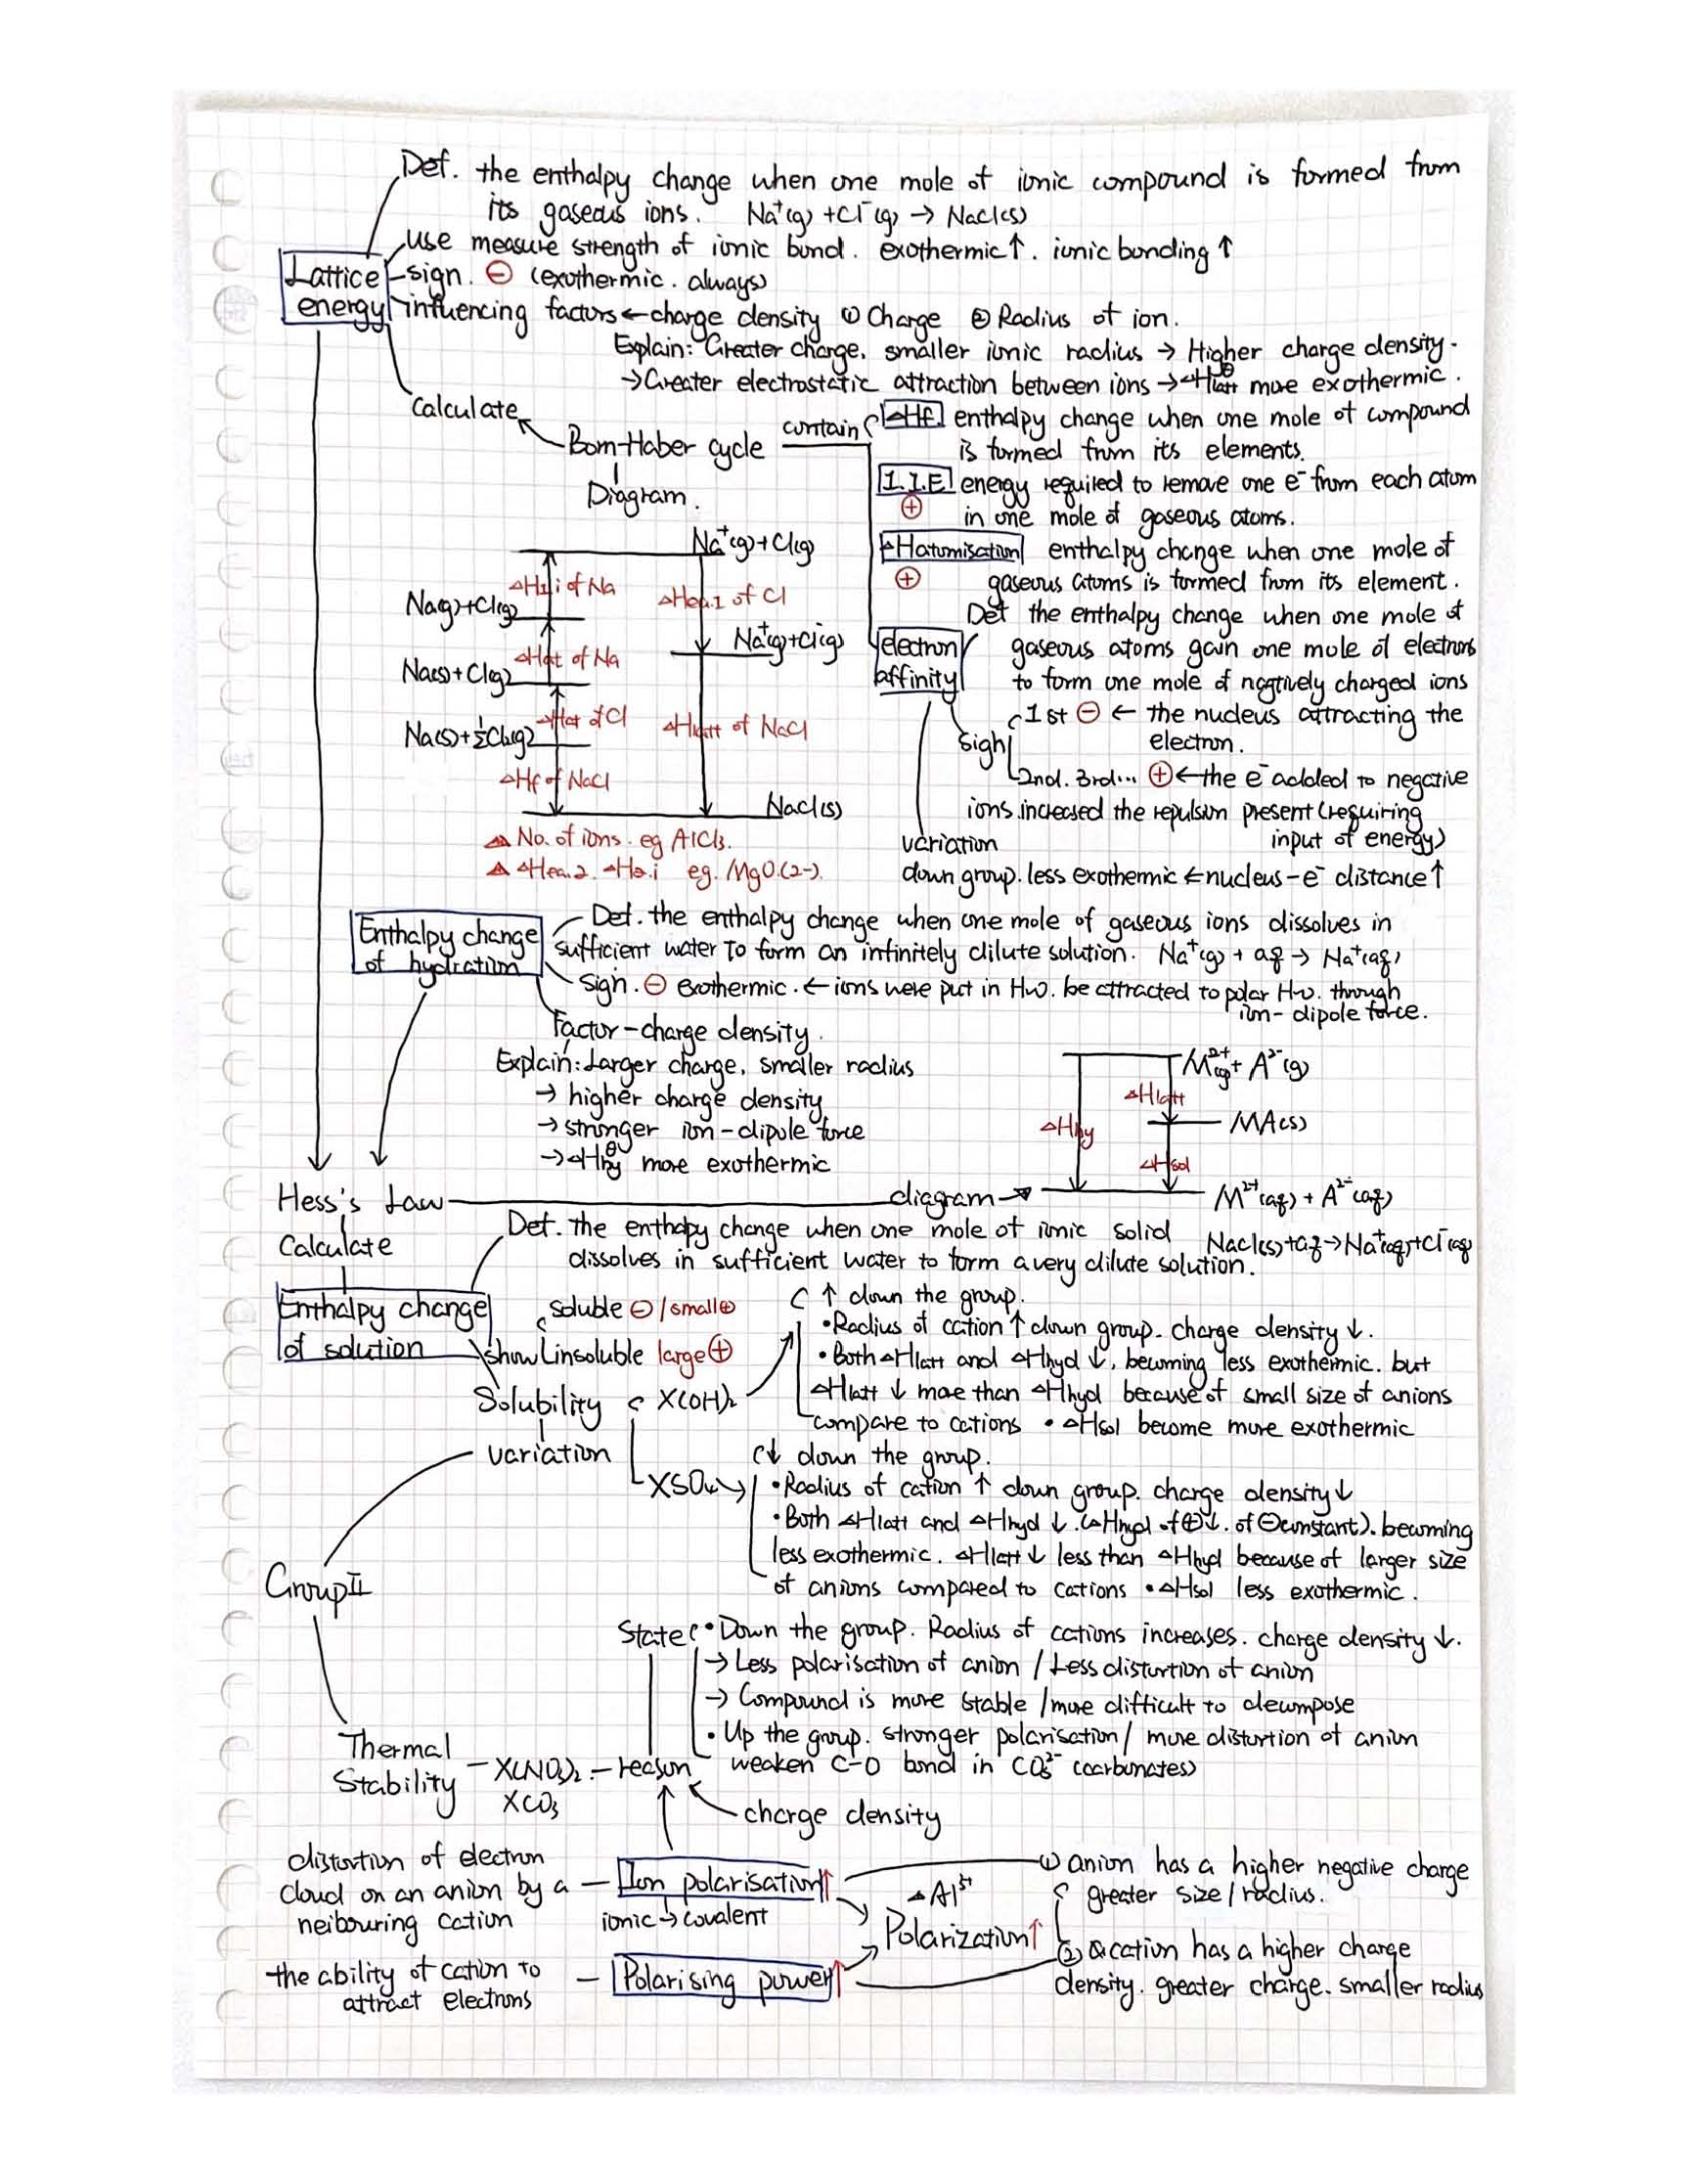 Def. the enthalpy change when one mole of ionic compound is formed from
its gaseous ions. Na⁺(g) + Cl⁻(g) → NaCl(s)
use measure strength of ionic bond. exothermic↑. ionic bonding ↑
Lattice energy
sign. ⊖ (exothermic. always)
influencing factors ← charge density ① Charge ② Radius of ion.
Explain: Greater charge. smaller ionic radius → Higher charge density.
→ Greater electrostatic attraction between ions → △Hlatt^θ more exothermic.
Calculate
Born-Haber cycle
contain
Diagram.
△Hf. enthalpy change when one mole of compound
is formed from its elements.
1.I.E energy required to remove one e⁻ from each atom
⊕ in one mole of gaseous atoms.
△Hatomisation enthalpy change when one mole of
⊕ gaseous atoms is formed from its element.
Def the enthalpy change when one mole of
electron affinity
gaseous atoms gain one mole of electrons
to form one mole of nagtively charged ions
sigh
1st ⊖ ← the nucleus attracting the
electron.
2nd. 3rd... ⊕ ← the e⁻ added to negative
ions.increased the repulsion present (requiring
input of energy)
variation
down group. less exothermic ← nucleus-e⁻ distance↑
Na⁺(g)+Cl(g)
△H1i of Na
Na(g)+Cl(g)
△Hea.1 of Cl
Na⁺(g)+Cl⁻(g)
△Hat of Na
Na(s)+Cl(g)
△Hat of Cl
△Hlatt of NaCl
Na(s)+½Cl₂(g)
△Hf of NaCl
NaCl(s)
△ No. of ions. eg AlCl₃.
△ △Hea.2. △H2.i eg. MgO.(2-).
Enthalpy change
of hydration
Def. the enthalpy change when one mole of gaseous ions dissolves in
sufficient water to form an infinitely dilute solution. Na⁺(g) + aq → Na⁺(aq)
sign. ⊖ exothermic. ← ions were put in H₂O. be attracted to polar H₂O. through
ion-dipole force.
Factor - charge density.
Explain: Larger charge. smaller radius
→ higher charge density
→ stronger ion-dipole force
→ △Hhy^θ more exothermic
M²⁺(g) + A²⁻(g)
△Hlatt
△Hhy
MA(s)
△Hsol
M²⁺(aq) + A²⁻(aq)
Hess's Law
diagram
Calculate
Def. the enthapy change when one mole of ionic solid
NaCl(s)+aq→Na⁺(aq)+Cl⁻(aq)
dissolves in sufficient water to form a very dilute solution.
Enthalpy change
of solution
show
soluble ⊖ / small⊕
insoluble large ⊕
Solubility
variation
X(OH)₂
↑ down the group.
•Radius of cation ↑ down group. charge density ↓.
•Both △Hlatt and △Hhyd ↓, becoming less exothermic. but
△Hlatt ↓ more than △Hhyd because of small size of anions
compare to cations • △Hsol become more exothermic
XSO₄
↓ down the group.
•Radius of cation ↑ down group. charge density↓
•Both △Hlatt and △Hhyd ↓.(△Hhyd of⊕↓. of ⊖constant). becoming
less exothermic. △Hlatt ↓ less than △Hhyd because of larger size
of anions compared to cations • △Hsol less exothermic.
Group II
State
•Down the group. Radius of cations increases. charge density ↓.
→ Less polarisation of anion / Less distortion of anion
→ Compound is more stable / more difficult to decompose
•Up the group. stronger polarisation / more distortion of anion
weaken C-O bond in CO₃²⁻ (carbonates)
Thermal
Stability
X(NO₃)₂
XCO₃
reason
charge density
distortion of electron
cloud on an anion by a
neibouring cation
Ion polarisation↑
ionic → covalent
① anion has a higher negative charge
greater size / radius.
△Al³⁺
Polarization↑
② cation has a higher charge
density. greater charge. smaller radius
the ability of cation to
attract electrons
Polarising power↑